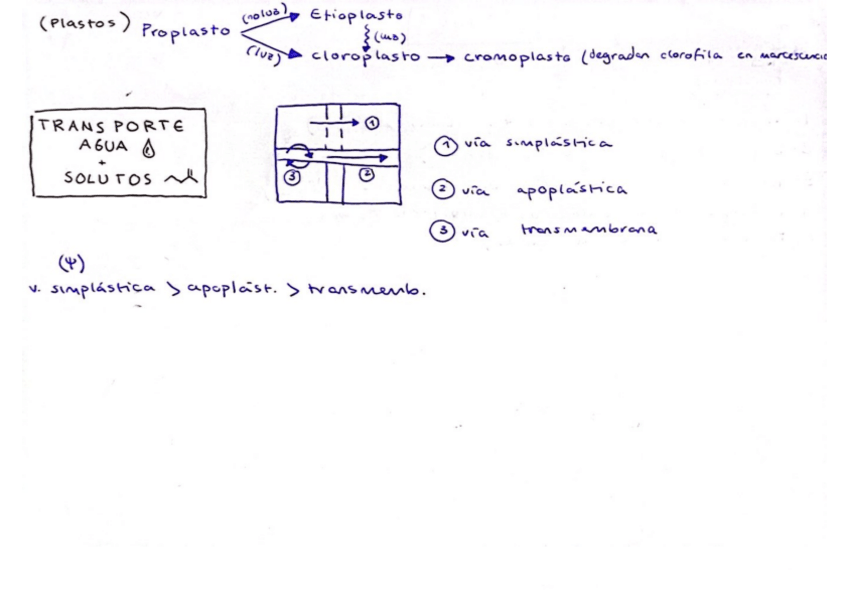 (Plastos) Proplasto (no luz) Etioplasto
(luz)
(luz) cloroplasto → cromoplasto (degradan clorofila en marcescencia
TRANSPORTE
AGUA
+
SOLUTOS
①
③ ②
① vía simplástica
② vía apoplástica
③ vía transmembrana
(Ψ)
v. simplástica > apoplást. > transmemb.